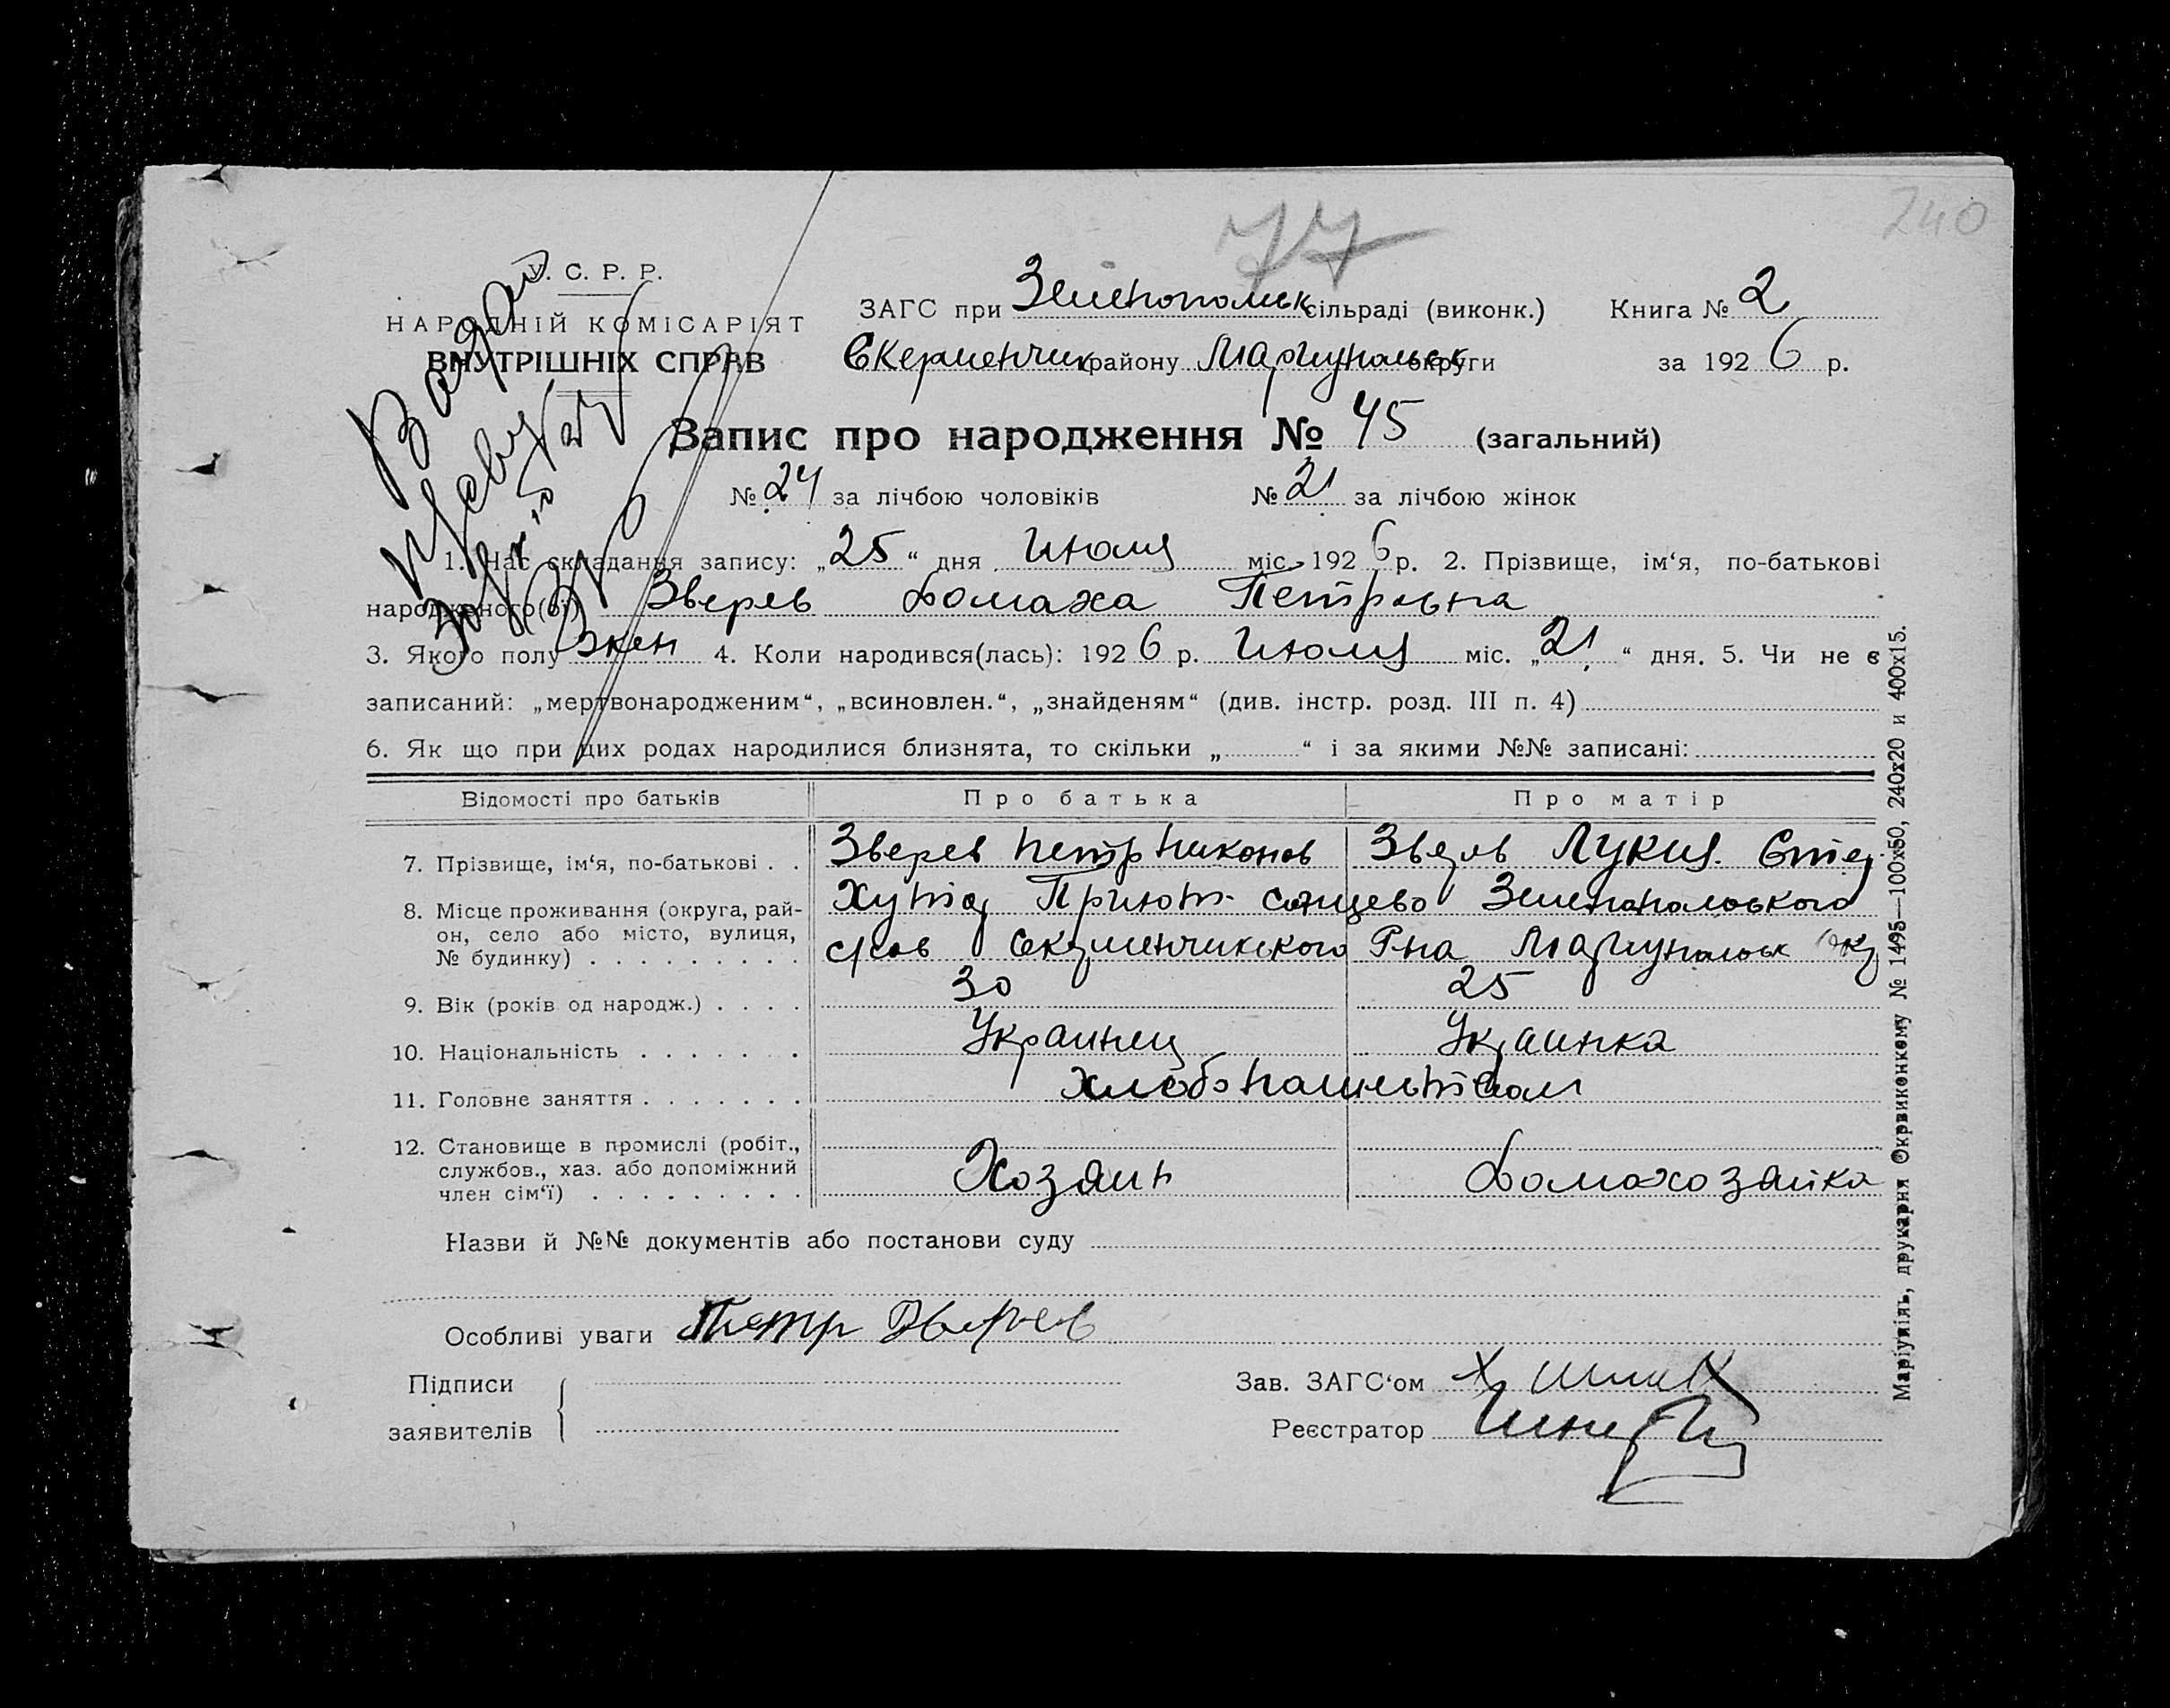 77
240
У. С. Р. Р.
НАРОДНІЙ КОМІСАРІЯТ
ВНУТРІШНІХ СПРАВ
ЗАГС при Зеленопольск сільраді (виконк.) Книга № 2
Скерменчик району Мариупольск округи за 1926 р.
Запис про народження № 45 (загальний)
№ 24 за лічбою чоловіків № 21 за лічбою жінок
1. Час складання запису: „25“ дня Июля міс. 1926 р. 2. Прізвище, ім‘я, по-батькові
народженого(ої) Зверев Домаха Петровна
3. Якого полу жен 4. Коли народився(лась): 1926 р. Июля міс. „21“ дня. 5. Чи не є
записаний: „мертвонародженим“, „всиновлен.“, „знайденям“ (див. інстр. розд. III п. 4)
6. Як що при цих родах народилися близнята, то скільки „ “ і за якими №№ записані:
Відомості про батьків Про батька Про матір
7. Прізвище, ім‘я, по-батькові . . Зверев Петр Никонов Зверев Лукия.
8. Місце проживання (округа, рай- Хутор Приют Зеленопольского
он, село або місто, вулиця, с/сов Скерменчикского Рна Мариупольск Окр
№ будинку) . . . . . . . . .
9. Вік (років од народж.) . . . . 30 25
10. Національність . . . . . . . Украинец Украинка
11. Головне заняття . . . . . . . Хлебопашеством
12. Становище в промислі (робіт.,
службов., хаз. або допоміжний Хозяин Домохозяйка
член сім‘ї) . . . . . . . . .
Назви й №№ документів або постанови суду
Особливі уваги Петр Зверев
Підписи Зав. ЗАГС‘ом
заявителів Реєстратор
Маріупіль, друкарня Окрвиконкому № 1495—100х50, 240х20 и 400х15.